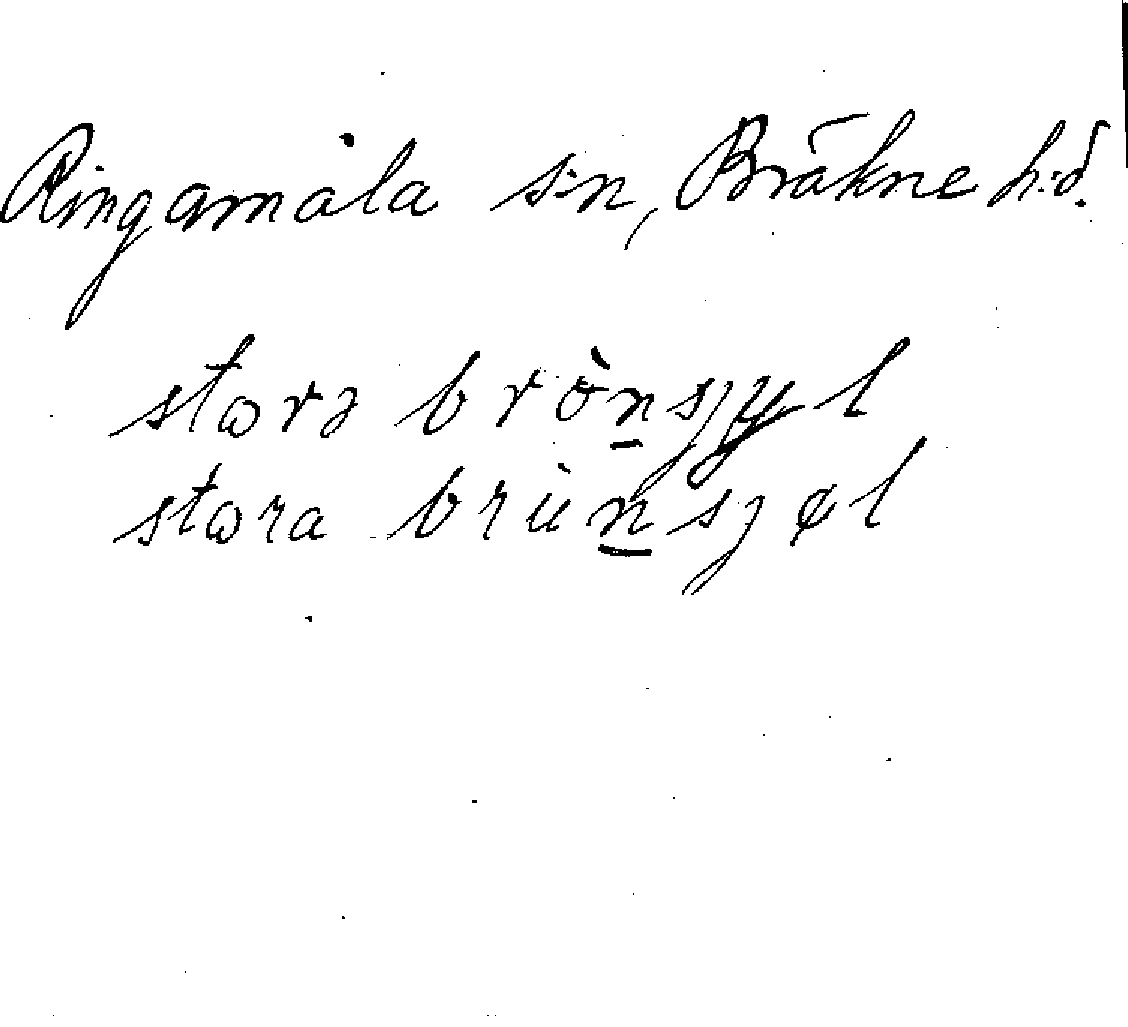 Ringamåla s:n, Bräkne h:d.
storə bròn̲sjyl
stora brùn̲sjøl